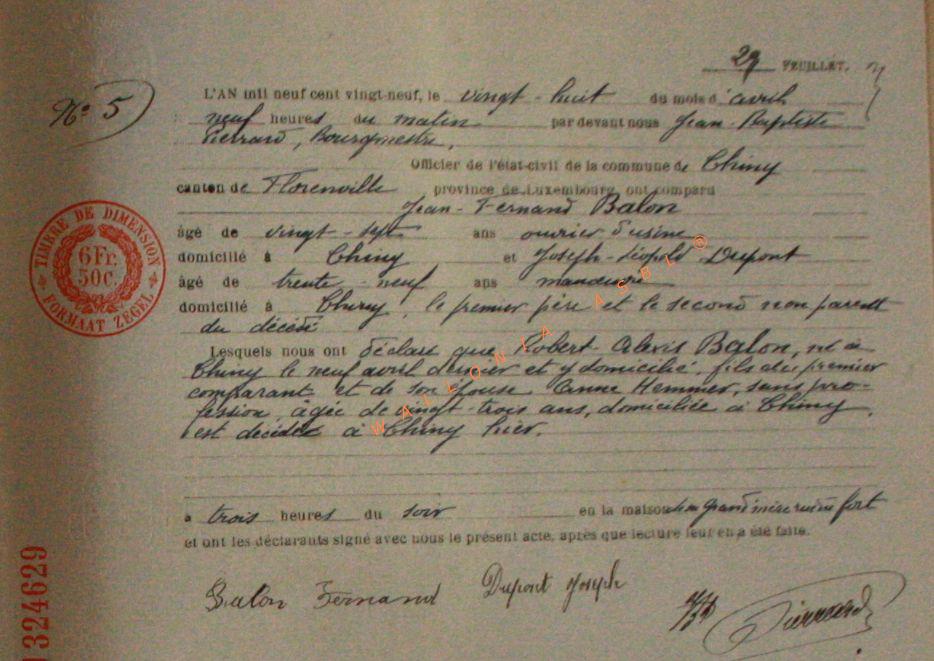 29 FEUILLET.
N° 5
L'AN mil neuf cent vingt-neuf, le vingt-huit du mois d'avril
neuf heures du matin par devant nous Jean-Baptiste
Pierrard, Bourgmestre,
Officier de l'état-civil de la commune de Chiny
canton de Florenville province de Luxembourg, ont comparu
Jean-Fernand Balon
âgé de vingt-sept ans ouvrier d'usine
domicilié à Chiny et Joseph-Léopold Dupont
âgé de trente-neuf ans manœuvre
domicilié à Chiny, le premier père et le second non parent
du décédé
Lesquels nous ont déclaré que Robert Alexis Balon, né à
Chiny le neuf avril dernier et y domicilié, fils du premier
comparant et de son épouse Anna Hemmer, sans pro-
fession, âgée de vingt-trois ans, domiciliée à Chiny,
est décédé à Chiny hier.
à trois heures du soir en la maison grand'mère rue du fort
et ont les déclarants signé avec nous le présent acte, après que lecture leur en a été faite.
Balon Fernand Dupont Joseph
Pierrard
TIMBRE DE DIMENSION
6Fr.
50c.
FORMAAT ZEGEL
1324629
WALLONIA ASBL ©